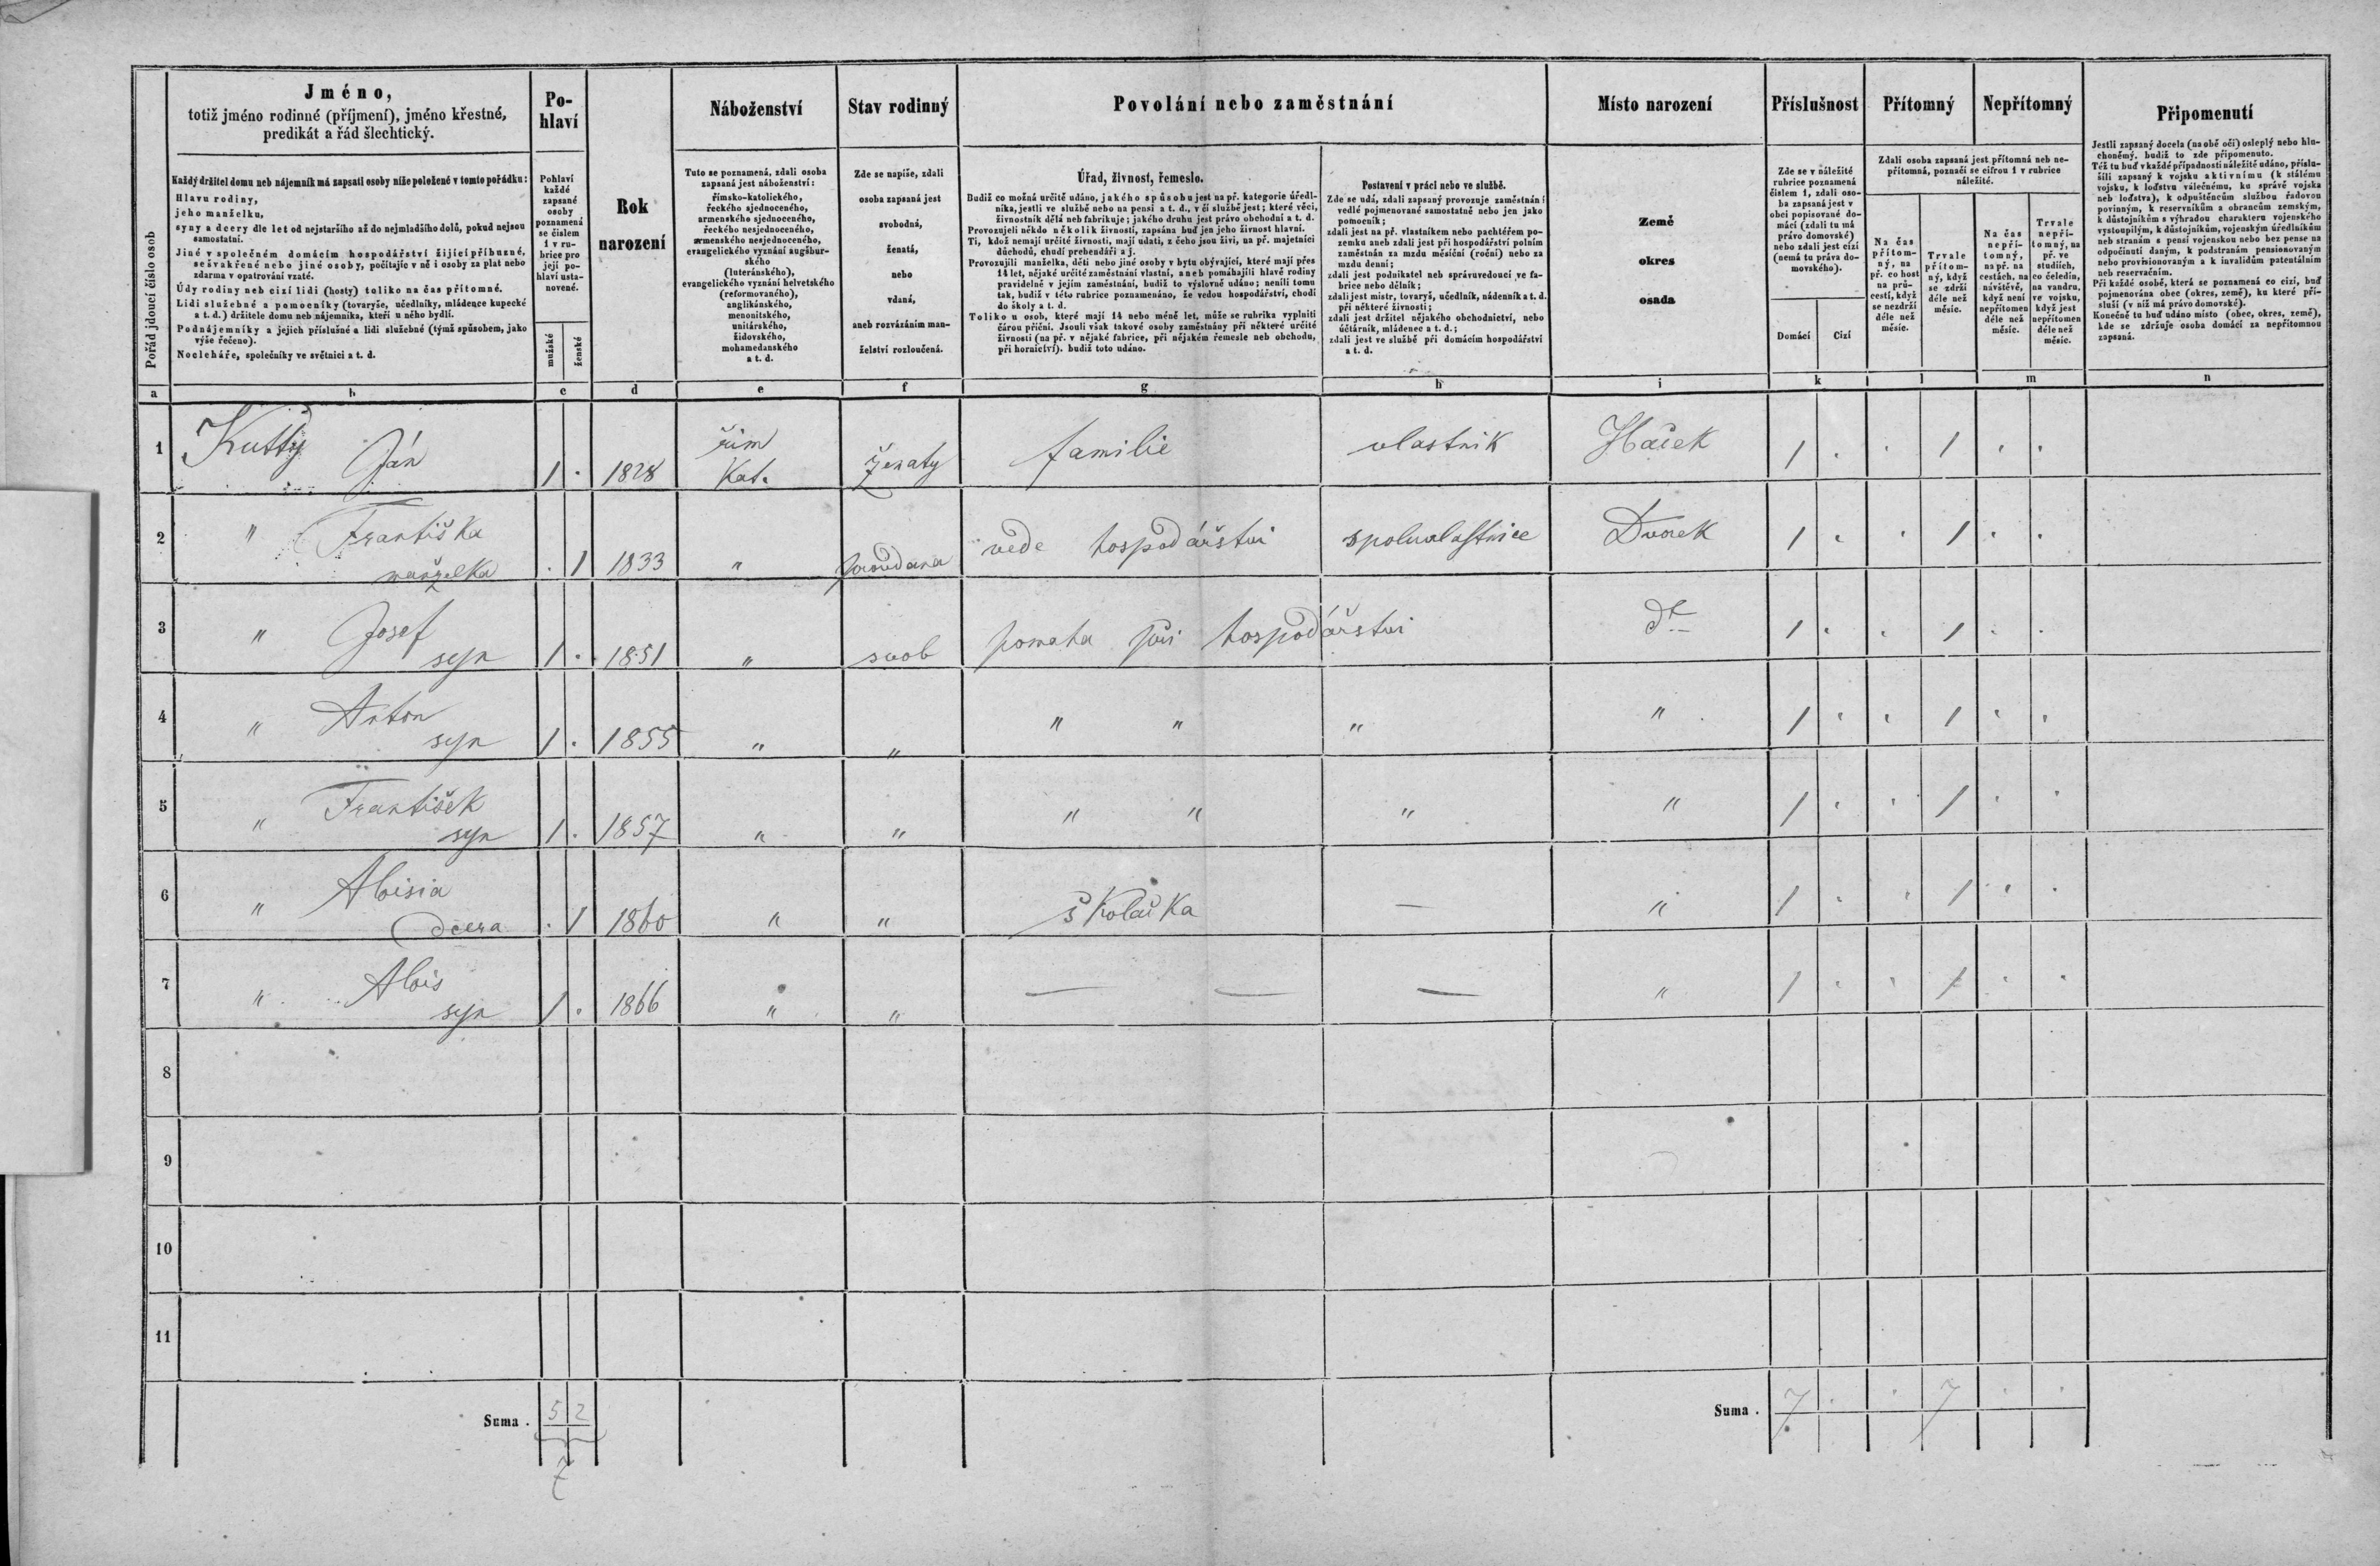 Jméno,
totiž jméno rodinné (příjmení), jméno křestné,
predikát a řád šlechtický.
Po-
hlaví
Náboženství
Stav rodinný
Povolání nebo zaměstnání
Místo narození
Příslušnost
Přítomný
Nepřítomný
Připomenutí
Pořád jdoucí číslo osob
Každý držitel domu neb nájemník má zapsati osoby níže položené v tomto pořádku:
Hlavu rodiny,
jeho manželku,
syny a dcery dle let od nejstaršího až do nejmladšího dolů, pokud nejsou
samostatni.
Jiné v společném domácím hospodářství žijící příbuzné,
sešvakřené nebo jiné osoby, počítajíc v ně i osoby za plat nebo
zdarma v opatrování vzaté.
Údy rodiny neb cizí lidi (hosty) toliko na čas přítomné.
Lidi služebné a pomocníky (tovaryše, učedlníky, mládence kupecké
a t. d.) držitele domu neb nájemníka, kteří u něho bydlí.
Podnájemníky a jejich příslušné a lidi služebné (týmž spůsobem, jako
výše řečeno).
Nocleháře, společníky ve světnici a t. d.
Pohlaví
každé
zapsané
osoby
poznamená
se číslem
1 v ru-
brice pro
její po-
hlaví usta-
novené.
mužské
ženské
Rok
narození
Tuto se poznamená, zdali osoba
zapsaná jest náboženství:
římsko-katolického,
řeckého sjednoceného,
armenského sjednoceného,
řeckého nesjednoceného,
armenského nesjednoceného,
evangelického vyznání augšbur-
ského
(luteránského),
evangelického vyznání helvetského
(reformovaného),
anglikánského,
menonitského,
unitárského,
židovského,
mohamedanského
a t. d.
Zde se napíše, zdali
osoba zapsaná jest
svobodná,
ženatá,
nebo
vdaná,
aneb rozvázáním man-
želství rozloučená.
Úřad, živnost, řemeslo.
Budiž co možná určitě udáno, jakého spůsobu jest na př. kategorie úředl-
níka, jestli ve službě nebo na pensi a t. d., v čí službě jest; které věci,
živnostník dělá neb fabrikuje; jakého druhu jest právo obchodní a t. d.
Provozujeli někdo několik živností, zapsána buď jen jeho živnost hlavní.
Ti, kdož nemají určité živnosti, mají udati, z čeho jsou živi, na př. majetníci
důchodů, chudí prebendáři a j.
Provozujíli manželka, děti nebo jiné osoby v bytu obývající, které mají přes
14 let, nějaké určité zaměstnání vlastní, aneb pomáhajíli hlavě rodiny
pravidelně v jejím zaměstnání, budiž to výslovně udáno; neníli tomu
tak, budiž v této rubrice poznamenáno, že vedou hospodářství, chodí
do školy a t. d.
Toliko u osob, které mají 14 nebo méně let, může se rubrika vyplniti
čárou příční. Jsouli však takové osoby zaměstnány při některé určité
živnosti (na př. v nějaké fabrice, při nějakém řemesle neb obchodu,
při hornictví). budiž toto udáno.
Postavení v práci nebo ve službě.
Zde se udá, zdali zapsaný provozuje zaměstnání
vedlé pojmenované samostatně nebo jen jako
pomocník;
zdali jest na př. vlastníkem nebo pachtéřem po-
zemku aneb zdali jest při hospodářství polním
zaměstnán za mzdu měsíční (roční) nebo za
mzdu denní;
zdali jest podnikatel neb správuvedoucí ve fa-
brice nebo dělník;
zdali jest mistr, tovaryš, učedlník, nádenník a t. d.
při některé živnosti;
zdali jest držitel nějakého obchodnictví, nebo
účtárník, mládenec a t. d.;
zdali jest ve službě při domácím hospodářství
a t. d.
Země
okres
osada
Zde se v náležité
rubrice poznamená
číslem 1, zdali oso-
ba zapsaná jest v
obci popisované do-
mácí (zdali tu má
právo domovské)
nebo zdali jest cizí
(nemá tu práva do-
movského).
Domácí
Cizí
Zdali osoba zapsaná jest přítomná neb ne-
přítomná, poznačí se cifrou 1 v rubrice
náležité.
Na čas
přítom-
ný, na
př. co host
na prů-
cestí, když
se nezdrží
déle než
měsíc.
Trvale
přítom-
ný, když
se zdrží
déle než
měsíc.
Na čas
nepří-
tomný,
na př. na
cestách, na
návštěvě,
když není
nepřítomen
déle než
měsíc.
Trvale
nepří-
tomný, na
př. ve
studiích,
co čeledín,
na vandru,
ve vojsku,
když jest
nepřítomen
déle než
měsíc.
Jestli zapsaný docela (na obě oči) oslepý nebo hlu-
choněmý, budiž to zde připomenuto.
Též tu buď v každé případnosti náležitě udáno, příslu-
šíli zapsaný k vojsku aktivnímu (k stálému
vojsku, k loďstvu válečnému, ku správě vojska
neb loďstva), k odpuštěncům službou řadovou
povinným, k reservníkům a obrancům zemským,
k důstojníkům s výhradou charakteru vojenského
vystoupilým, k důstojníkům, vojenským úředlníkům
neb stranám s pensí vojenskou nebo bez pense na
odpočinutí daným, k podstranám pensionovaným
nebo provisionovaným a k invalidům patentálním
neb reservačním.
Při každé osobě, která se poznamená co cizí, buď
pojmenována obec (okres, země), ku které pří-
sluší (v níž má právo domovské).
Konečně tu buď udáno místo (obec, okres, země),
kde se zdržuje osoba domácí za nepřítomnou
zapsaná.
a b c d e f g h i k l m n
1 Kutty Ján 1 . 1828 řim Kat. ženaty familie vlastnik 1 . . 1 . .
2 " Františka manželka . 1 1833 " vede hospodářstvi spoluvlastnice Dvorek 1 . . 1 . .
3 " Josef syn 1 . 1851 " svob pomaha při hospodářstvi dt 1 . . 1 . .
4 " Anton syn 1 . 1855 " " " " " " 1 . . 1 . .
5 " František syn 1 . 1857 " " " " " " 1 . . 1 . .
6 " Aloisia dcera . 1 1860 " " školačka — " 1 . . 1 . .
7 " Alois syn 1 . 1866 " " — — — " 1 . . 1 . .
8
9
10
11
Suma . 5 2 Suma . 7 . . 7 . .
7